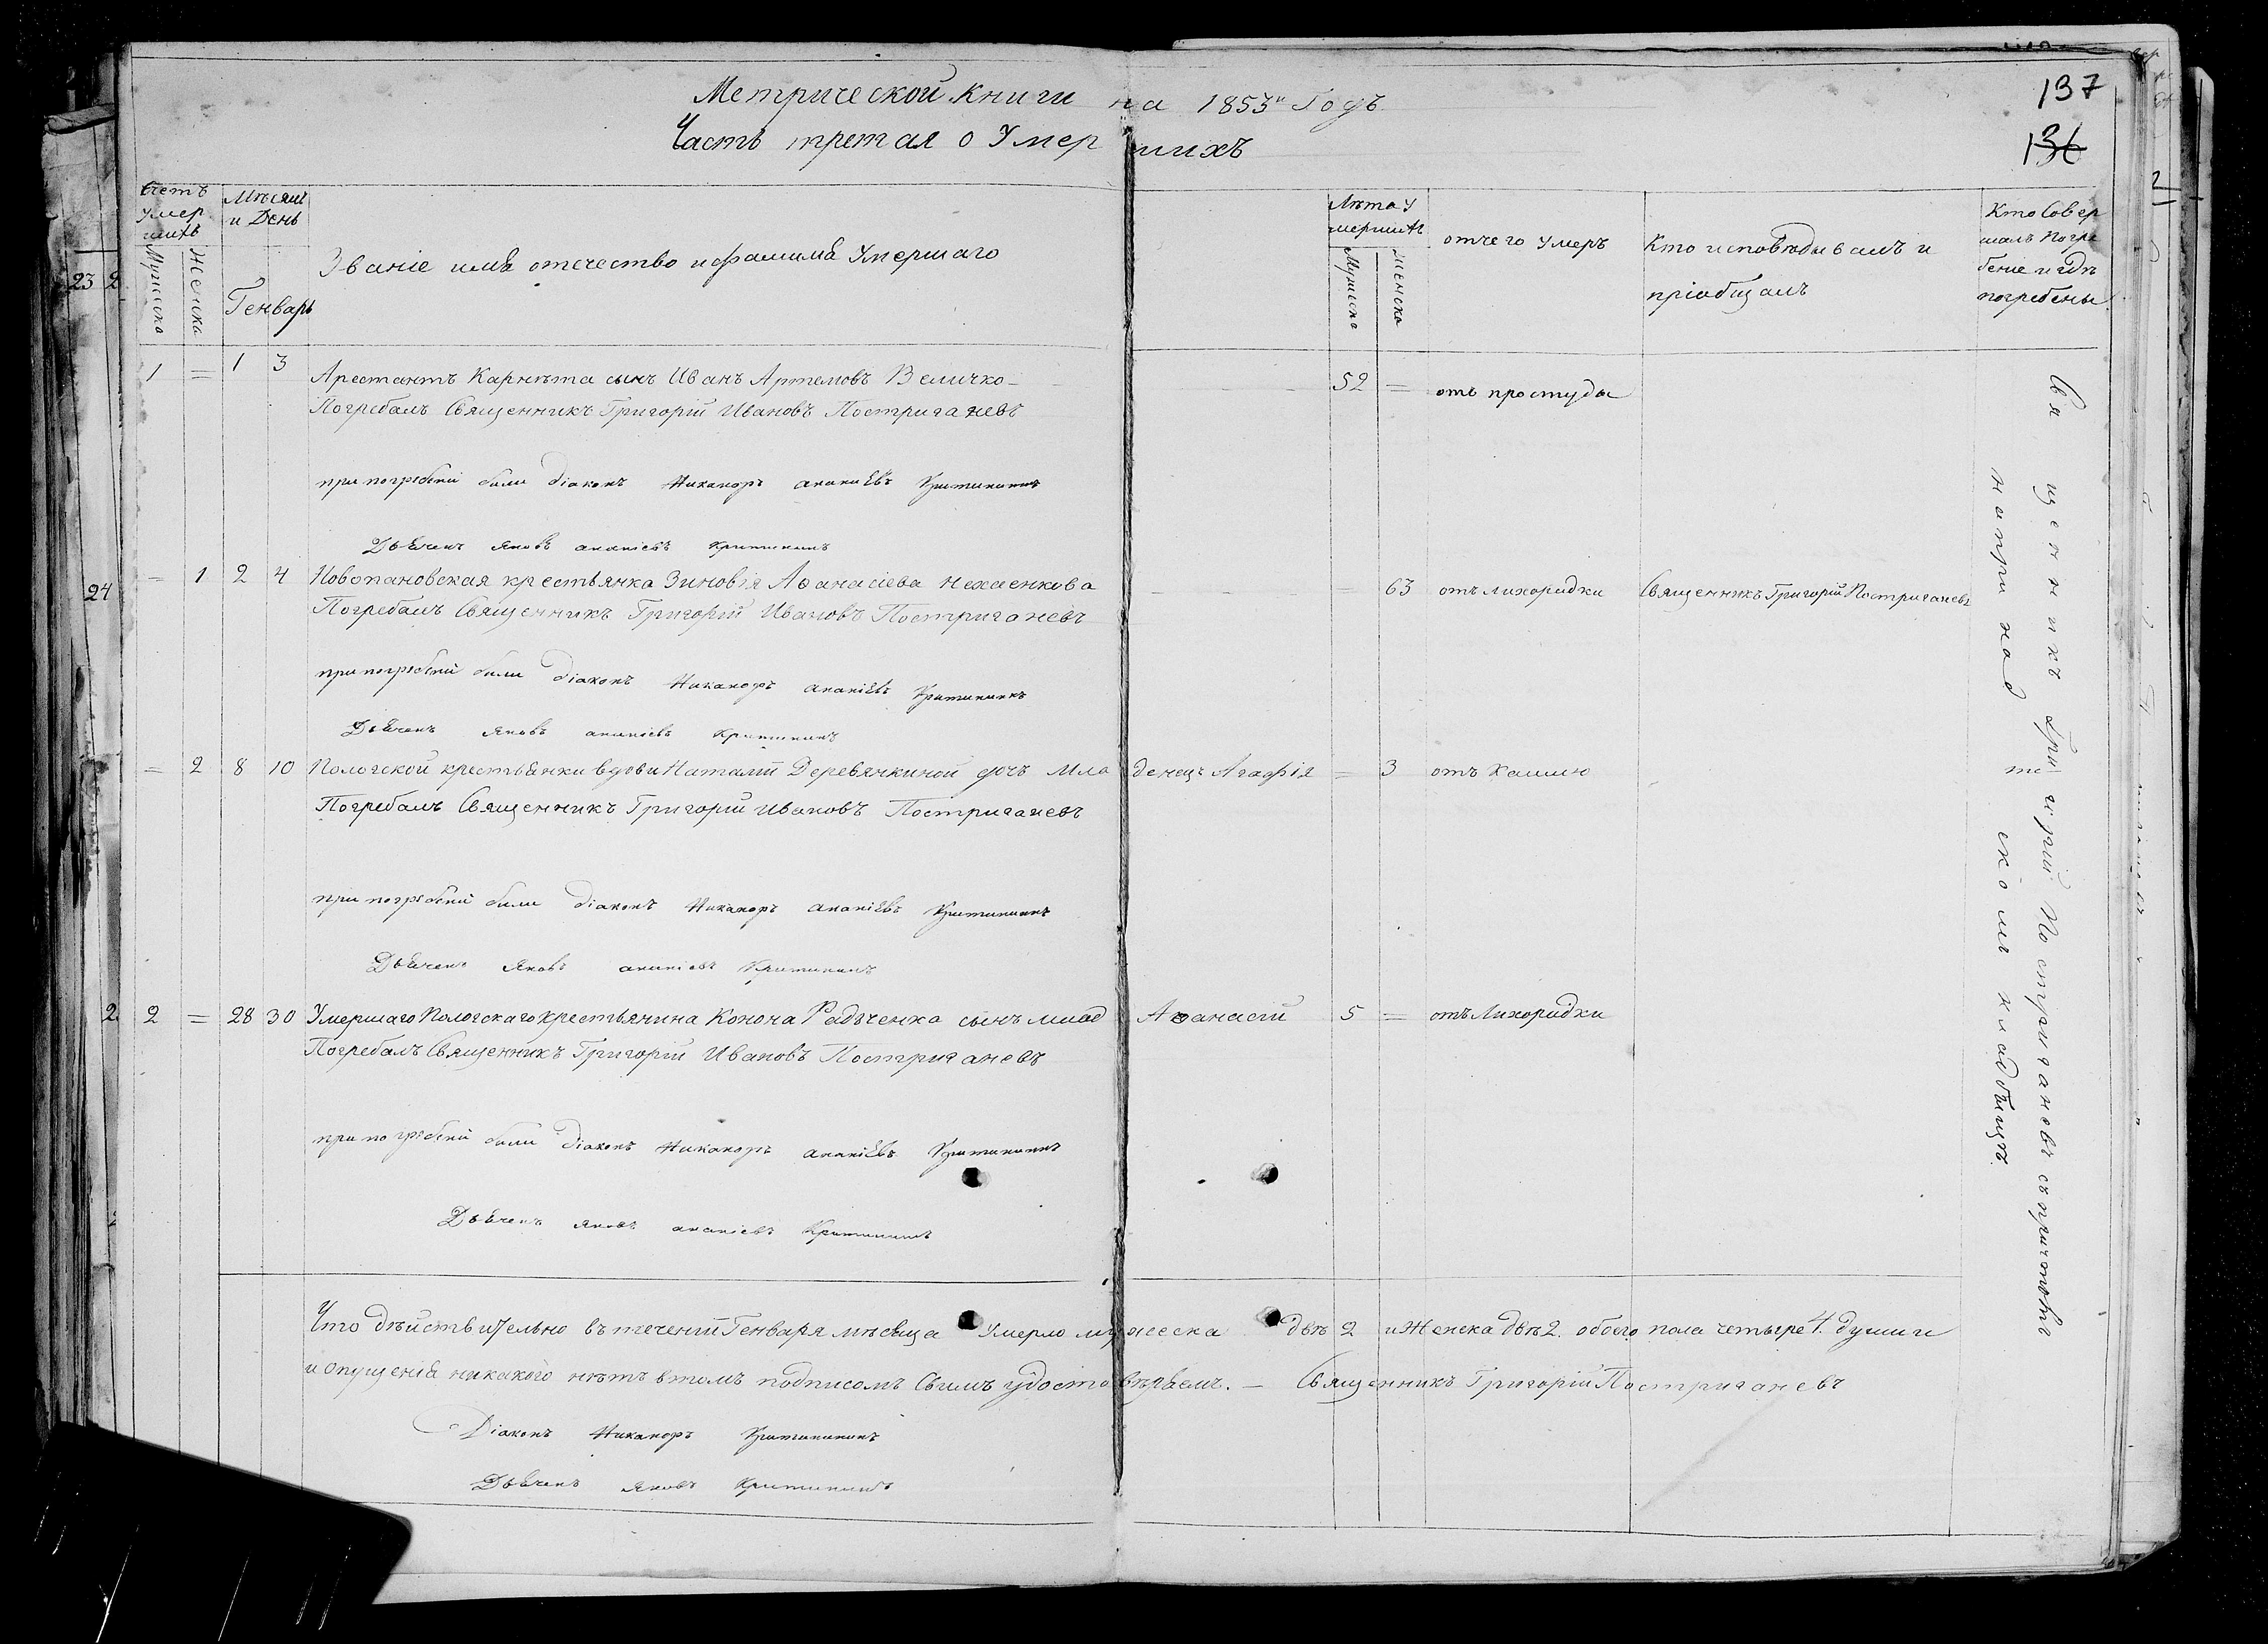 137
136
Метрической книги на 1853й Годъ
Часть третая о Умершихъ
Счетъ Умершихъ
Мужеска
Женска
Мѣсяц и День
Генварь
Званіе имя отечество и фамимя Умершаго
Лѣта Умершихъ
Мужеска
Женска
отчего Умеръ
Кто исповѣдывалъ и пріобщалъ
Кто Совершалъ Погребеніе и гдѣ погребены
1 = 1 3 Арестантъ Карнѣта сынъ Иванъ Артемовъ Величко 52 = отъ простуды
Погребалъ Священникъ Григорій Ивановъ Постриганевъ
при погребеніи были діаконъ Никаноръ Ананіевъ
Дьячекъ Яковъ Ананіевъ
= 1 2 4 Новопановская крестьянка Зиновія Аѳанасіева Нехаенкова 63 отъ Лихорадки Священникъ Григорій Постриганевъ
Погребалъ Священникъ Григорій Ивановъ Постриганевъ
при погребеніи были діаконъ Никаноръ Ананіевъ
Дьячекъ Яковъ Ананіевъ
= 2 8 10 Пологской крестьянки вдовы Наталіи Деревянкиной дочъ Младенецъ Агафія = 3 отъ Кашлю
Погребалъ Священникъ Григорій Ивановъ Постриганевъ
при погребеніи были діаконъ Никаноръ Ананіевъ
Дьячекъ Яковъ Ананіевъ
2 = 28 30 Умершаго Пологскаго крестьянина Конона Радьченка сынъ млад Аѳанасій 5 = отъ Лихорадки
Погребалъ Священникъ Григорій Ивановъ Постриганевъ
при погребеніи были діаконъ Никаноръ Ананіевъ
Дьячекъ Яковъ Ананіевъ
Священникъ Григорій Постриганевъ съ причтомъ
на приходскомъ кладбищѣ
Что дѣйствительно въ теченіи Генваря мѣсяца Умерло мужеска двѣ 2 и Женска двѣ 2. обоего пола четыре 4. души
и опущенія никакого нѣтъ втомъ подписомъ Своимъ удостовѣряемъ. — Священникъ Григорій Постриганевъ
Діаконъ Никаноръ
Дьячекъ Яковъ